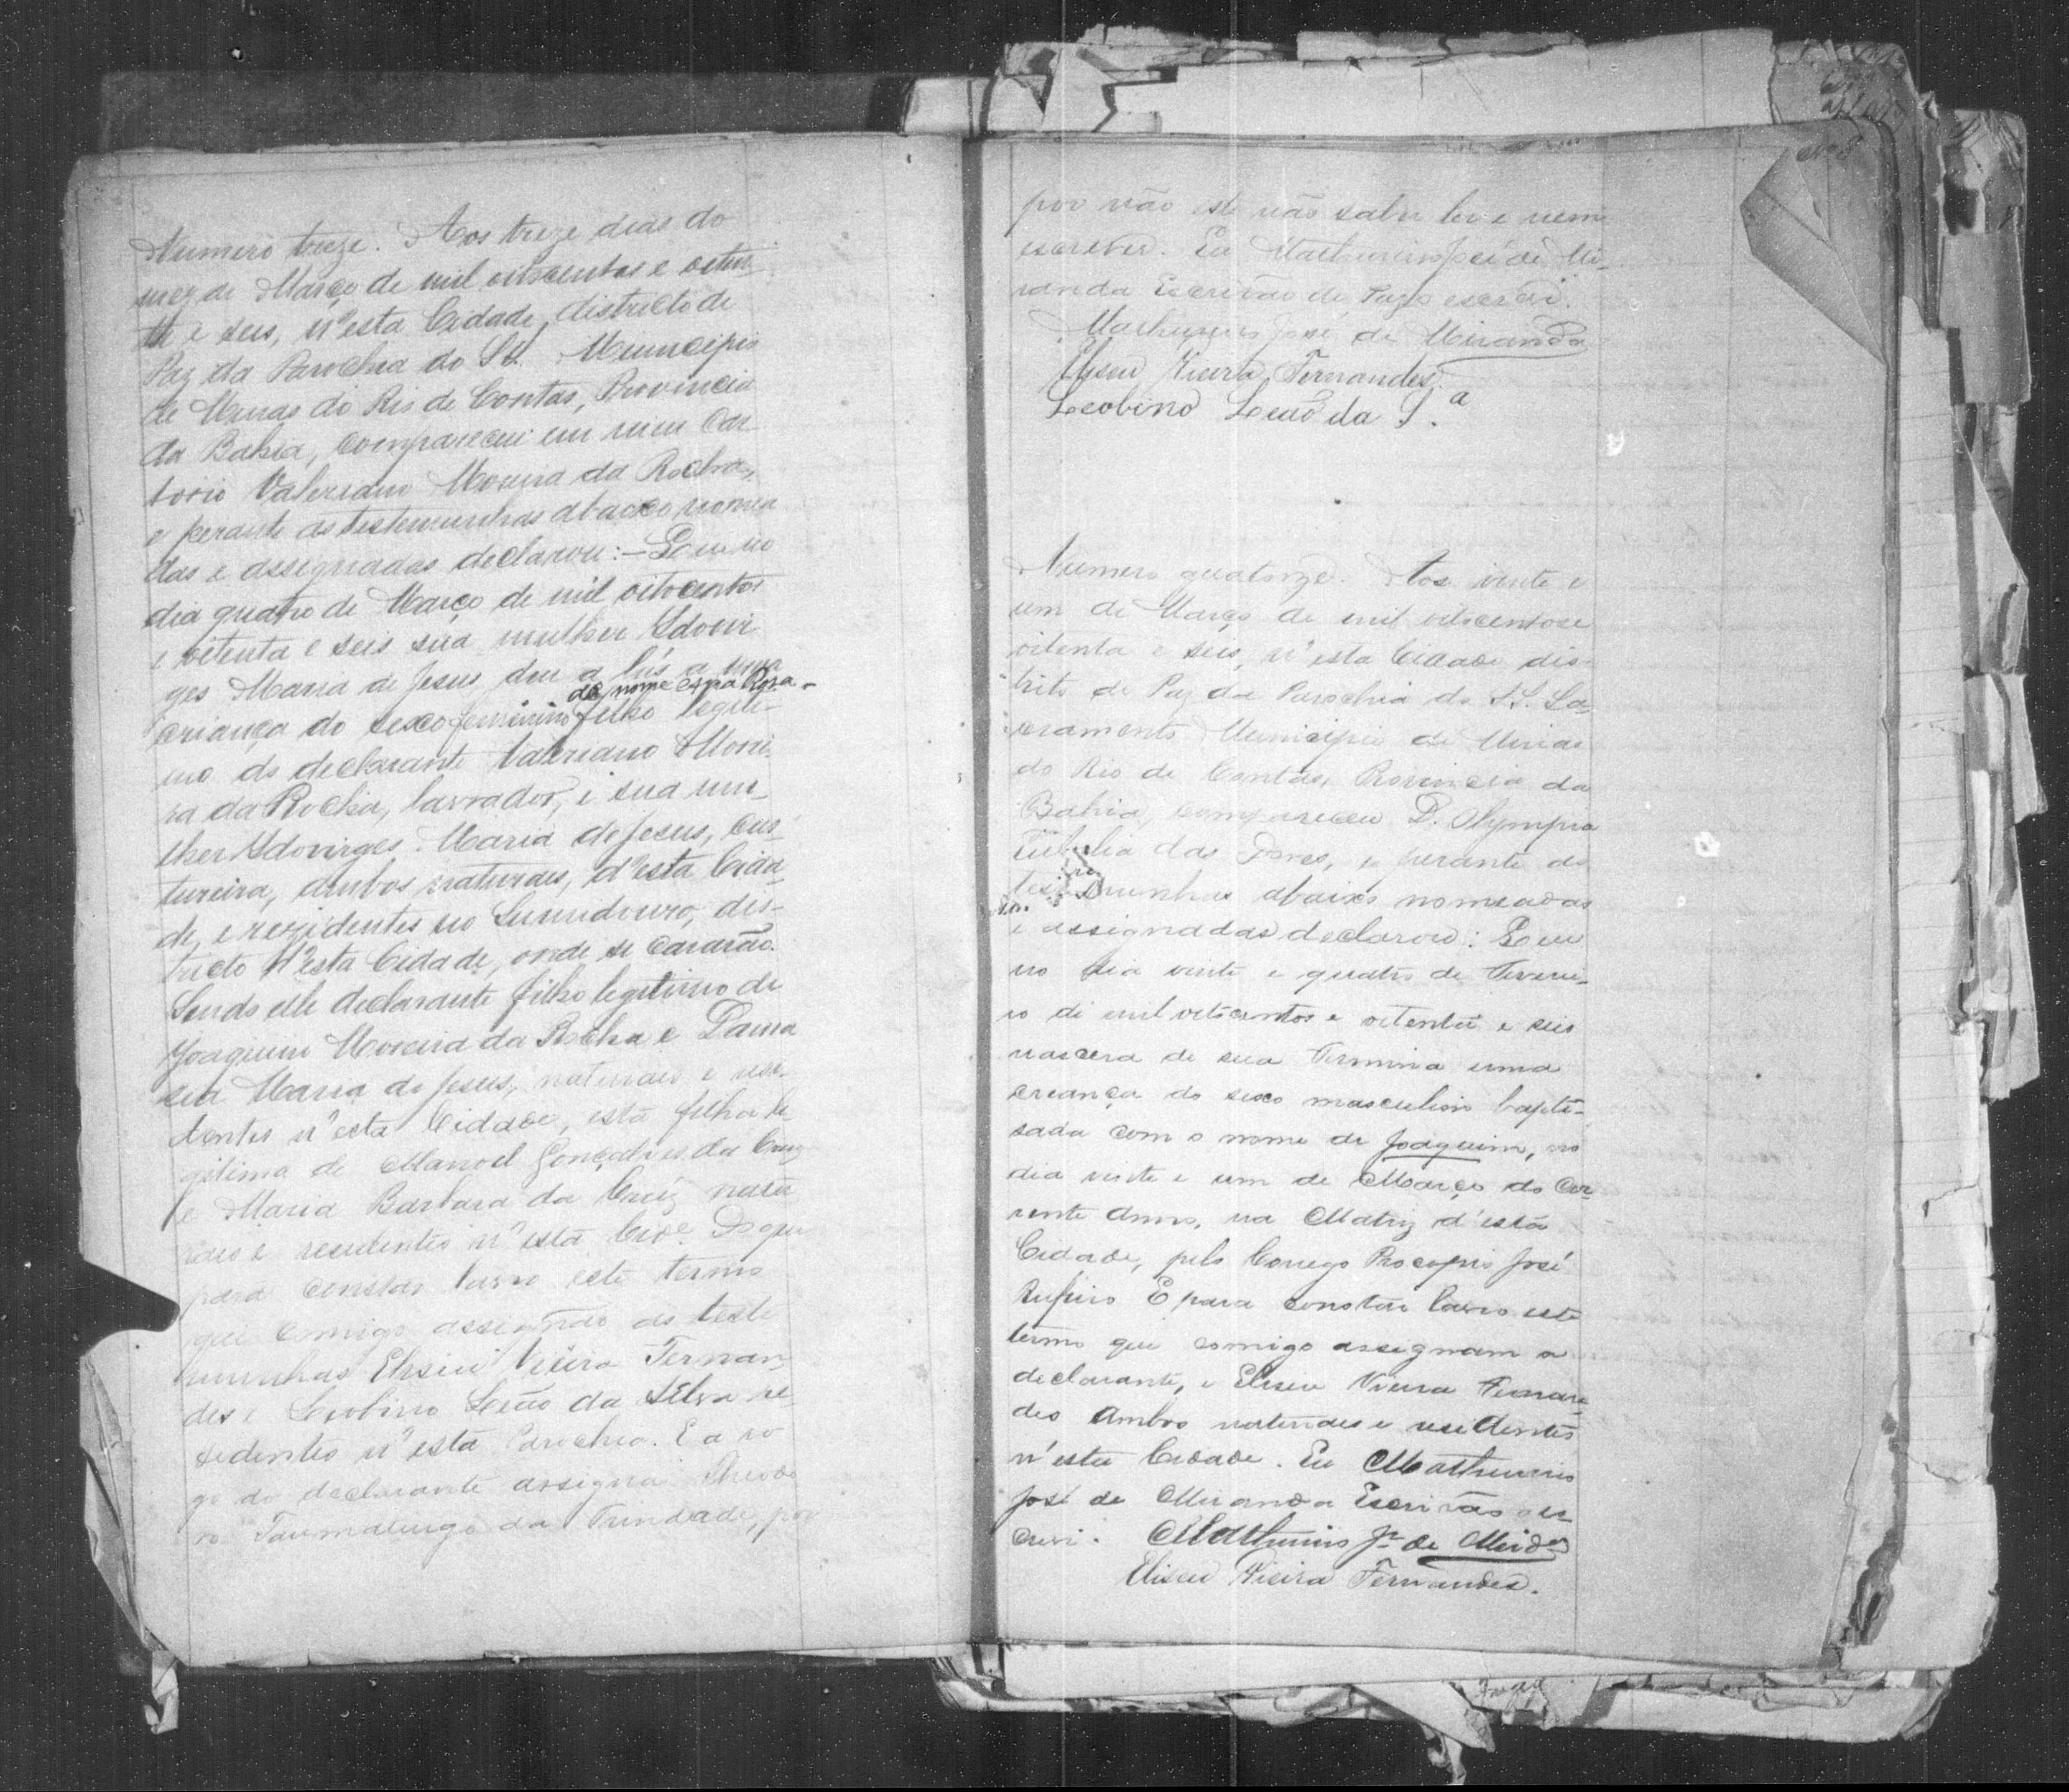 Numero treze. Aos treze dias do
mez de Março de mil oitocentos e oiten
ta e seis, n'esta Cidade, districto de
Paz da Parochia do SS. Municipio
de Minas do Rio de Contas, Provincia
da Bahia, compareceu em meu Car
torio Valeriano Moreira da Rocha,
e perante as testemunhas abaixo nomea
das e assignadas declarou:— Que no
dia quatro de Março de mil oitocentos
e oitenta e seis sua mulher Edovir
ges Maria de Jesus deu a lús a uma
de nome Rosa
criança do sexo feminino filho legiti-
mo do declarante Valeriano Morei
ra da Rocha, lavrador, e sua mu-
lher Edovirges Maria de Jesus, cus
tureira, ambos naturaes, d'esta Cida
de, e rezidentes no Sumidouro, dis-
tricto d'esta Cidade, onde se cazarão.
Sendo elle declarante filho legitimo de
Joaquim Moreira da Rocha e
Maria de Jesus, naturaes e resi-
dentes n'esta Cidade, esta filha le
gitima de Manoel Gonçalves da Cruz
e Maria Barbara da Cruz natu
raes e residentes n'esta Cide. Do que
para constar lavro este termo
que comigo assignão as teste
munhas Eliseu Vieira Fernan
des e Leobino Leão da Silva re
sidentes n'esta Parochia. E a ro
go do declarante assigna Theodo
ro Taumaturgo da Trindade, por
Nº 8
por não este não saber ler e nem
escrever. Eu Mathurino José de Mi-
randa Escrivão de Paz o escrevi.
Mathurino José de Miranda
Eliseu Vieira Fernandes.
Leobino Leão da S.ª
Numero quatorze. Aos vinte e
um de Março de mil oitocentos e
oitenta e seis, n'esta Cidade dis-
trito de Paz da Parochia do SS. Sa-
cramento Municipio de Minas
do Rio de Contas, Provincia da
Bahia, compareceu D. Olympia
das Dores, e perante as
testemunhas abaixo nomeadas
e assignadas declarou: Que
no dia vinte e quatro de Feverei-
ro de mil oitocentos e oitenta e seis
nascera de sua Firmina uma
creança do sexo masculino bapti-
sada com o nome de Joaquim, no
dia vinte e um de Março do Cor-
rente anno, na Matriz d'esta
Cidade, pelo Conego Procopio José
Rufino E para constar lavro este
termo que comigo assignam a
declarante, e Eliseu Vieira Fernan-
des ambos naturaes e residentes
n'esta Cidade. Eu Mathurino
José de Miranda Escrivão o es-
crevi. Mathurino Je de Mirda
Eliseu Vieira Fernandes.